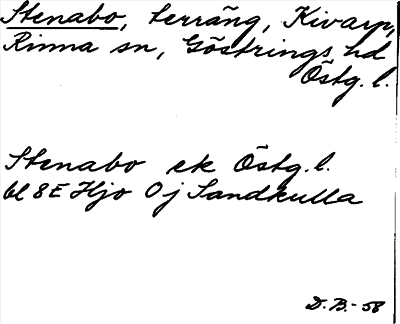 Stenabo, terräng, Kivarp,
Rinna sn, Göstrings hd
Östg. l.
Stenabo ek Östg. l.
bl 8E Hjo 0j Sandkulla
D. B. - 58